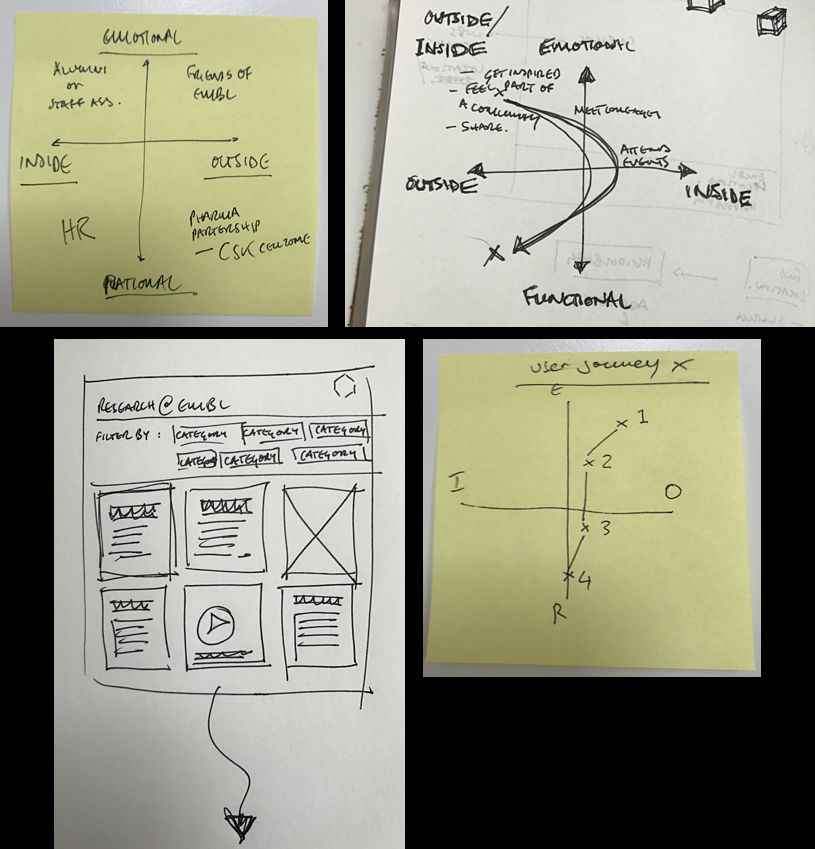 EMOTIONAL
ALUMNI
OR
STAFF ASS.
FRIENDS OF
EMBL
INSIDE
OUTSIDE
HR
PHARMA
PARTERSHIP
RATIONAL
OUTSIDE/
INSIDE
EMOTIONAL
- GET INSPIRED
- FEEL PART OF
A COMMUNITY
- SHARE.
ATTENDS
EVENTS
OUTSIDE
INSIDE
FUNCTIONAL
RESEARCH @ EMBL
FILTER BY : CATEGORY CATEGORY CATEGORY
CATEGORY CATEGORY CATEGORY
user journey x
E
1
2
I
O
3
4
R